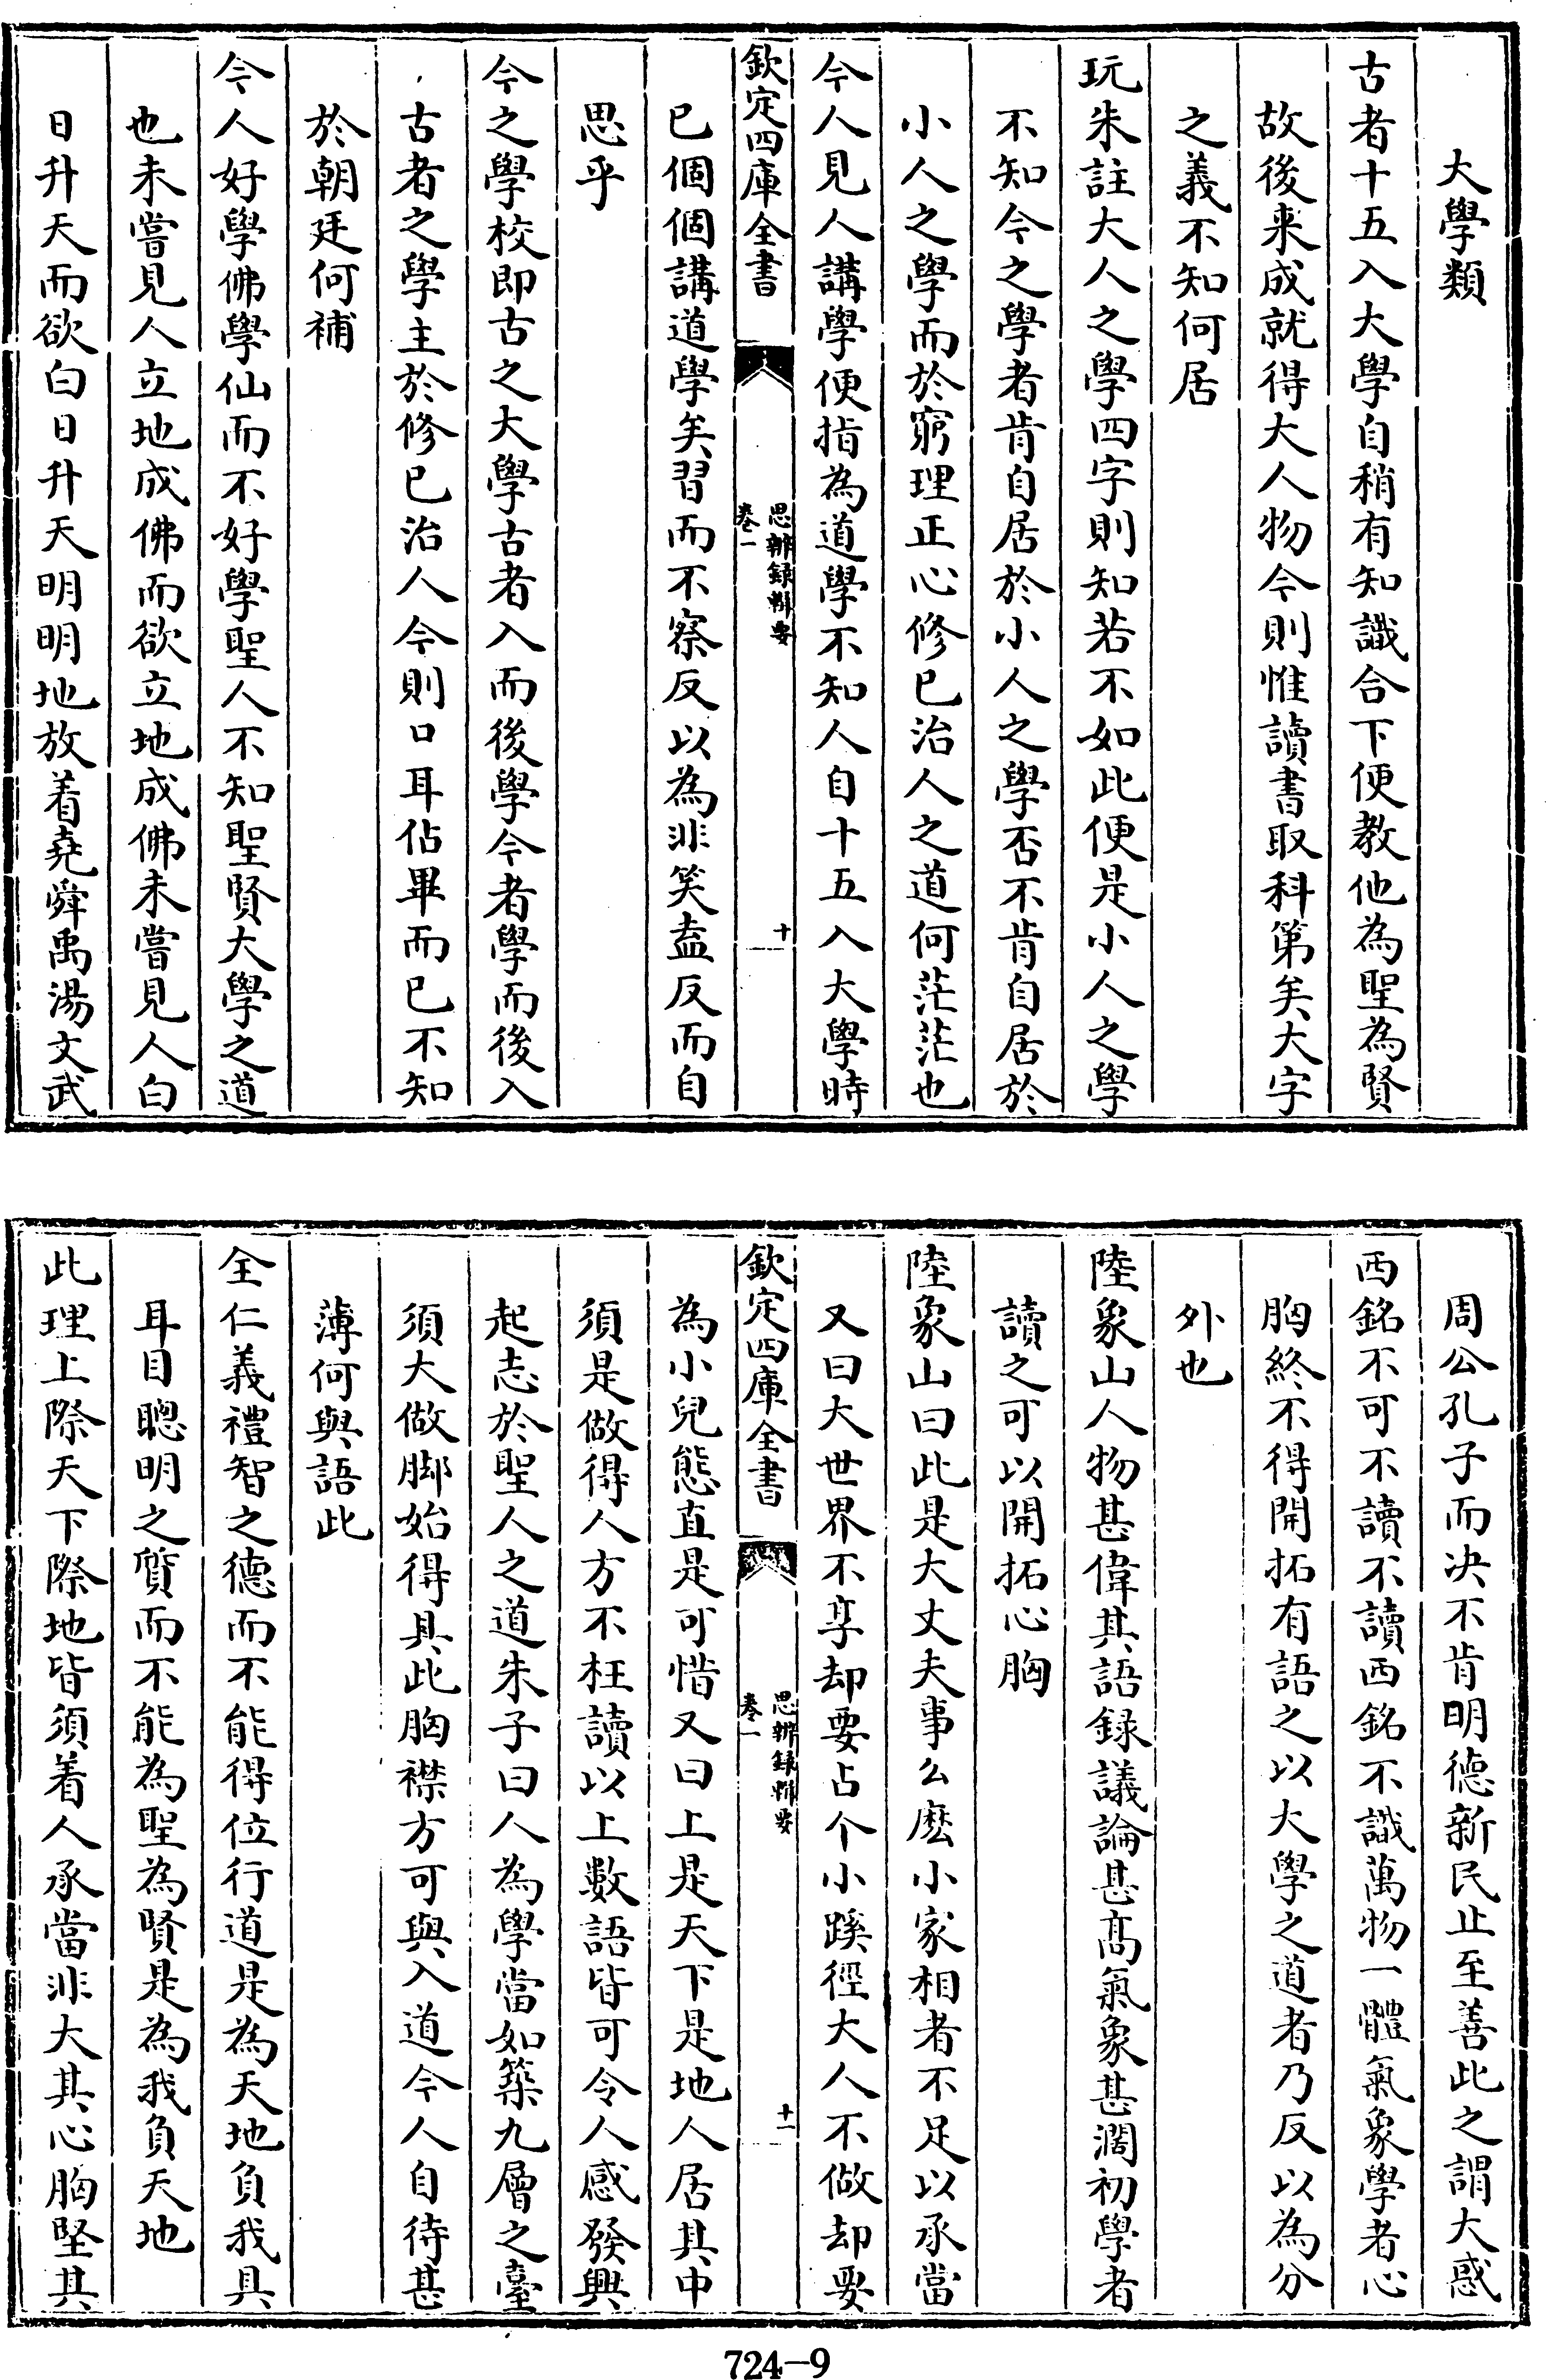 大學類
古者十五入大學自稍有知識合下便教他為聖為賢
故後来成就得大人物今則惟讀書取科第矣大字
之義不知何居
玩朱註大人之學四字則知若不如此便是小人之學
不知今之學者肯自居於小人之學否不肯自居於
小人之學而於窮理正心修已治人之道何茫茫也
今人見人講學便指為道學不知人自十五入大學時
欽定四庫全書
思辨録輯要
卷一
十
已個個講道學矣習而不察反以為非笑盍反而自
思乎
今之學校即古之大學古者入而後學今者學而後入
古者之學主於修已治人今則口耳佔畢而已不知
於朝廷何補
今人好學佛學仙而不好學聖人不知聖賢大學之道
也未嘗見人立地成佛而欲立地成佛未嘗見人白
日升天而欲白日升天明明地放着堯舜禹湯文武
周公孔子而决不肯明德新民止至善此之謂大惑
西銘不可不讀不讀西銘不識萬物一體氣象學者心
胸終不得開拓有語之以大學之道者乃反以為分
外也
陸象山人物甚偉其語録議論甚髙氣象甚濶初學者
讀之可以開拓心胸
陸象山曰此是大丈夫事么麽小家相者不足以承當
又曰大世界不享却要占个小蹊徑大人不做却要
欽定四庫全書
思辨録輯要
卷一
十一
為小兒態直是可惜又曰上是天下是地人居其中
須是做得人方不枉讀以上數語皆可令人感發興
起志於聖人之道朱子曰人為學當如築九層之臺
須大做脚始得具此胸襟方可與入道今人自待甚
薄何與語此
全仁義禮智之德而不能得位行道是為天地負我具
耳目聰明之質而不能為聖為賢是為我負天地
此理上際天下際地皆須着人承當非大其心胸堅其
724-9